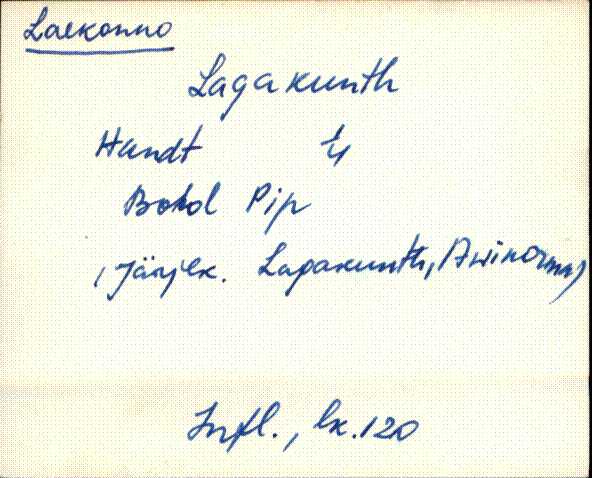 Laekonno
Lagakunth
Handt 1/4
Bohol Pip
(Järjek. Lapakunth, Awinorm)
Infl., lk. 120